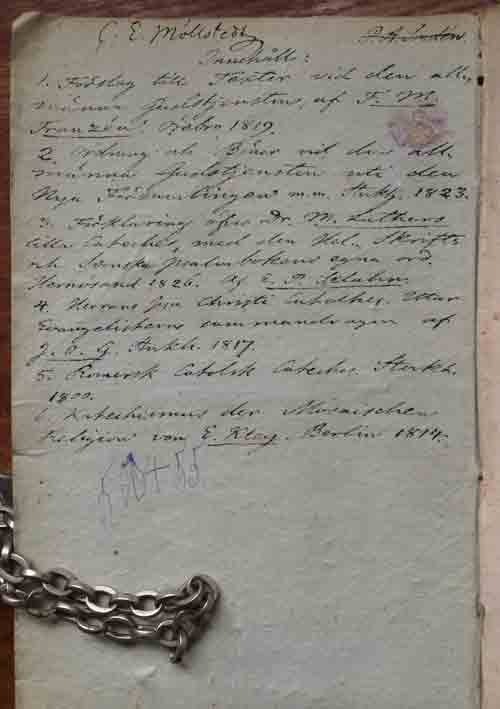 G. E. Möllstedt
Innehåll:
1. Förslag till Texter vid den all-
männa Gudstjensten, af F. M.
Franzén. Örebro 1819.
2. Ordning och Böner vid den all-
männa Gudstjensten uti den
Nya Församlingen m.m. Stokh. 1823.
3. Förklaring öfver Dr. M. Luthers
lilla Cateches, med den Hel. Skrifts
och Svenska psalmbokens egna ord.
Hernösand 1826. Af E. P.
4. Herrans Jesu Christi Catechес. Utur
Evangelisterna sammandragen af
J. O. G. Stokh. 1817.
5. Romersk Catolsk Cateches. Stockh.
6. Katechismus der Mosaischen
Religion von E. Kley. Berlin 1814.